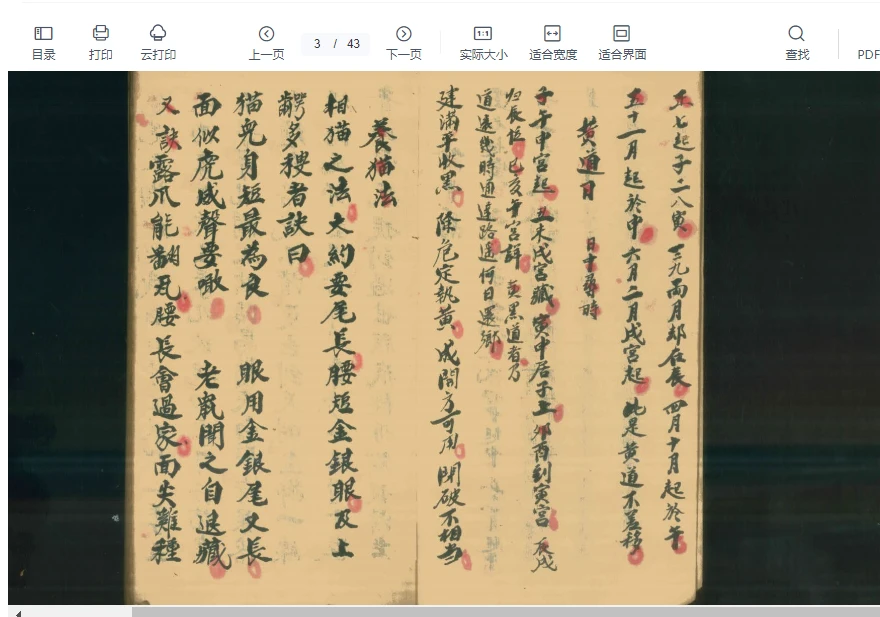 目录
打印
云打印
上一页
3 / 43
下一页
实际大小
适合宽度
适合界面
查找
PDF
正七起子二八寅 三九两月却在辰 四月十月起於午
五十一月起於申 六月二月戌宫起 此是黄道不差移
黄道日 日干尋時
子午中宫起 丑未戌宫藏 寅申居子上 卯酉到寅宫 辰戌
归辰位 巳亥午宫詳 黄黑道者乃
道遠幾時通達路遥何日還鄉
建滿平收黑 除危定執黄 成開方可用 閉破不相当
養猫法
相猫之法大約要尾長腰短金銀眼及上
齶多稜者訣曰
猫兒身短最為良 眼用金銀尾又長
面似虎成聲要噉 老鼠聞之自退藏
又訣露爪能翻瓦腰長會過家面失雞種